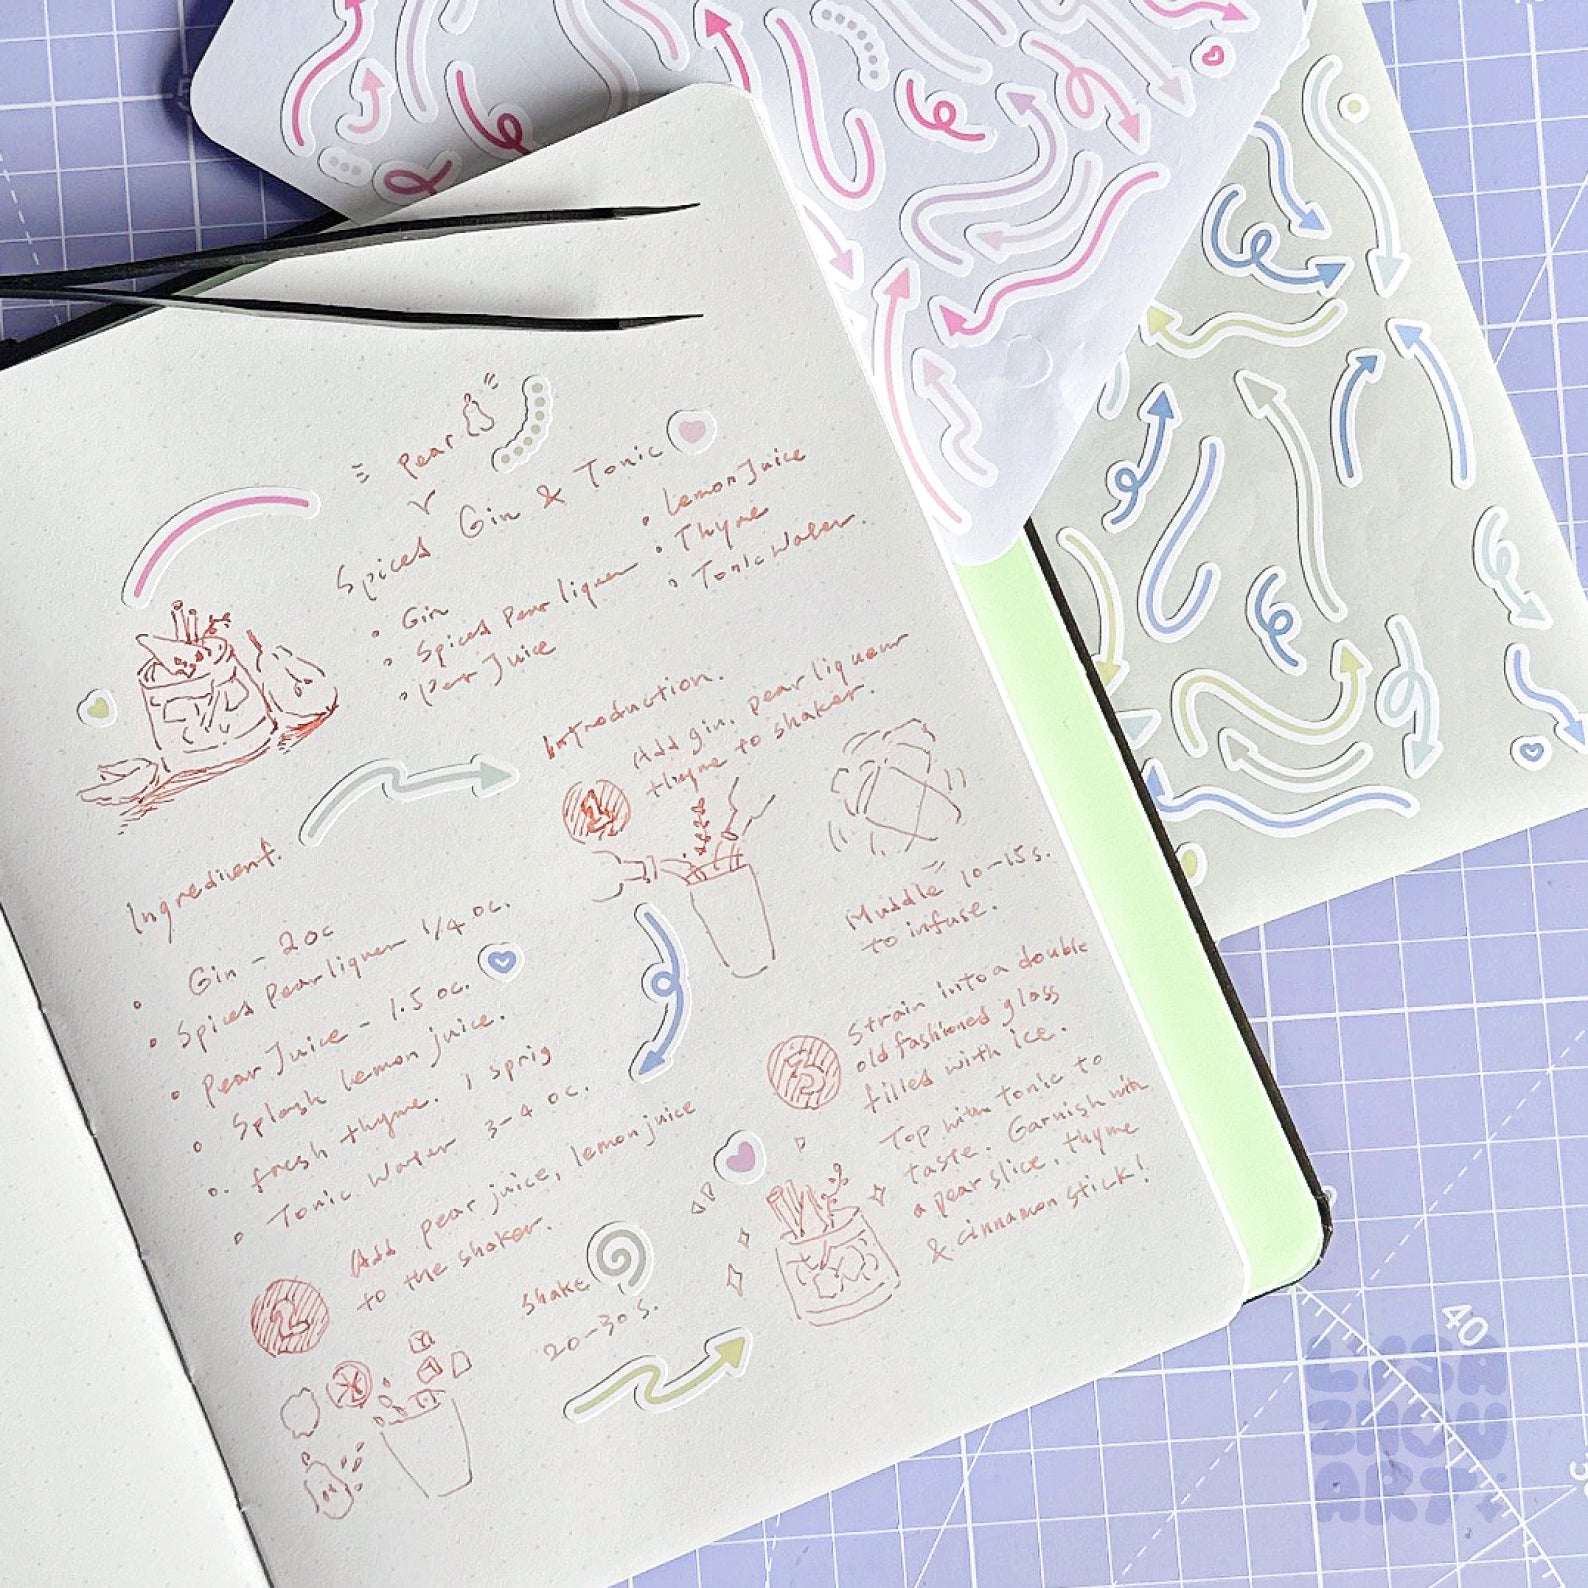 Pear
Spiced Gin & Tonic
• Gin
• Spiced Pear liquer
• Pear Juice
• Lemon Juice
• Thyme
• Tonic Water.
Ingredient.
• Gin - 2 oc
• Spiced Pear liquer 1/4 oc.
• Pear Juice - 1.5 oc.
• Splash lemon juice.
• fresh thyme. 1 sprig
• Tonic Water 3-4 oc.
Introduction.
1
Add gin, pear liqueur
thyme to shaker.
Muddle 10-15s.
to infuse.
2
Add pear juice, lemon juice
to the shaker.
Shake
20-30s.
3
Strain into a double
old fashioned glass
filled with ice.
Top with tonic to
taste. Garnish with
a pear slice, thyme
& cinnamon stick!
40
LISA
ZHOU
ART